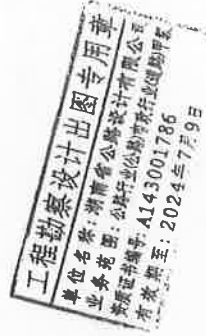 工程勘察设计出图专用章
单位名称:湖南省公路设计有限公司
业务范围:公路行业(公路)专业甲级
资质证书编号:A143001786
有效期至:2024年7月9日